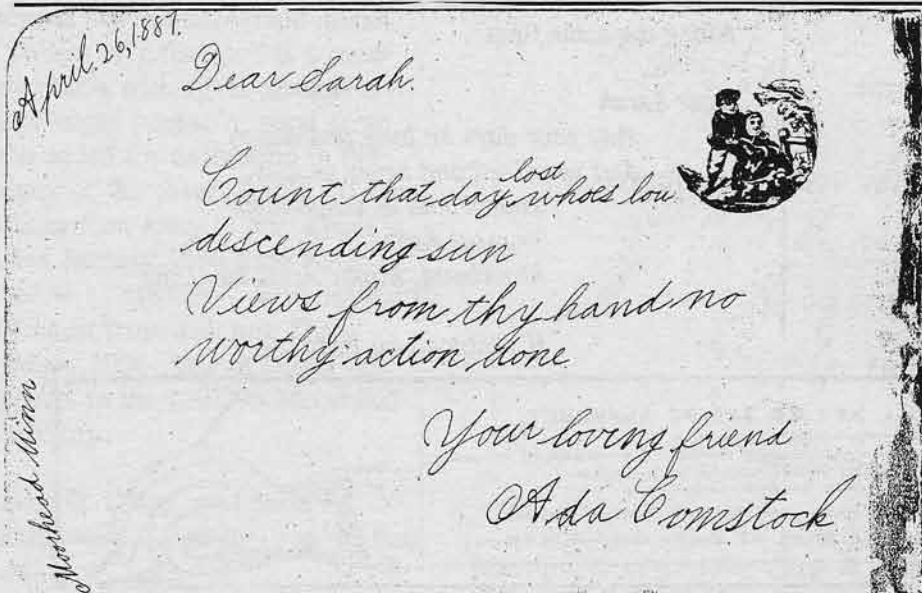 April. 26, 1887.
Dear Sarah.
Count that day lost whoes low
descending sun
Views from thy hand no
worthy action done
Your loving friend
Ada Comstock
Moorhead Minn